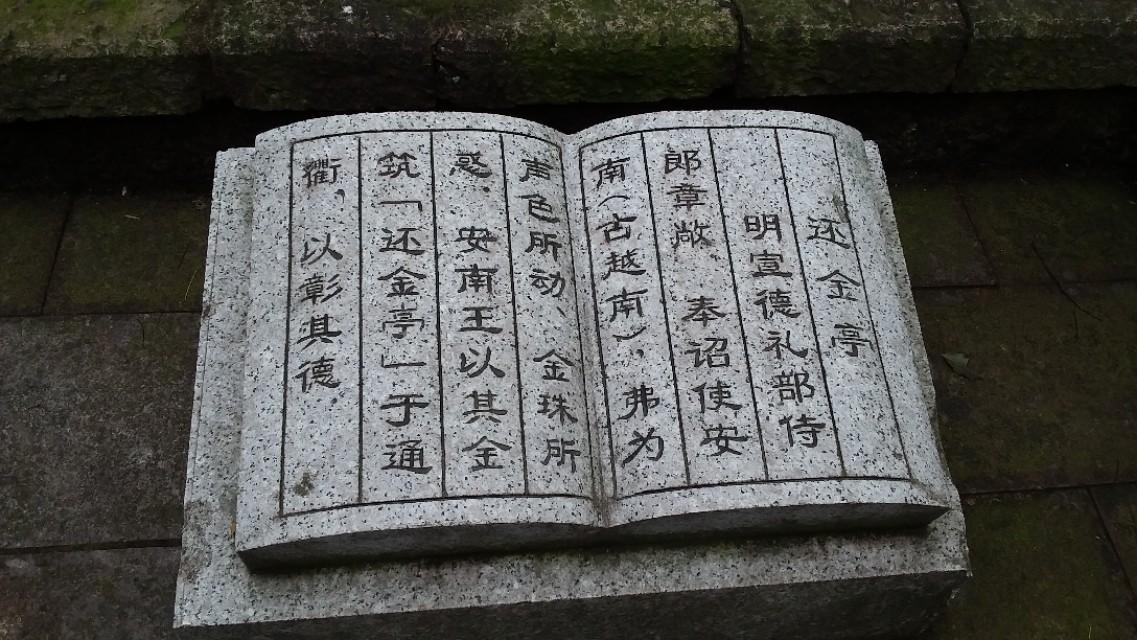 还金亭
明宣德礼部侍
郎章敞 奉诏使安
南（古越南），弗为
声色所动、金珠所
惑、安南王以其金
筑「还金亭」于通
衢，以彰其德